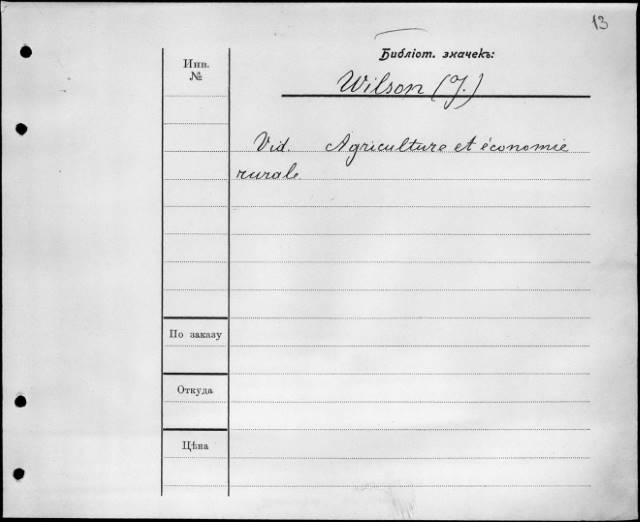 13
Библіот. значекъ:
Инв.
№
Wilson (J.)
Vid. Agriculture et économie
rurale
По заказу
Откуда
Цѣна